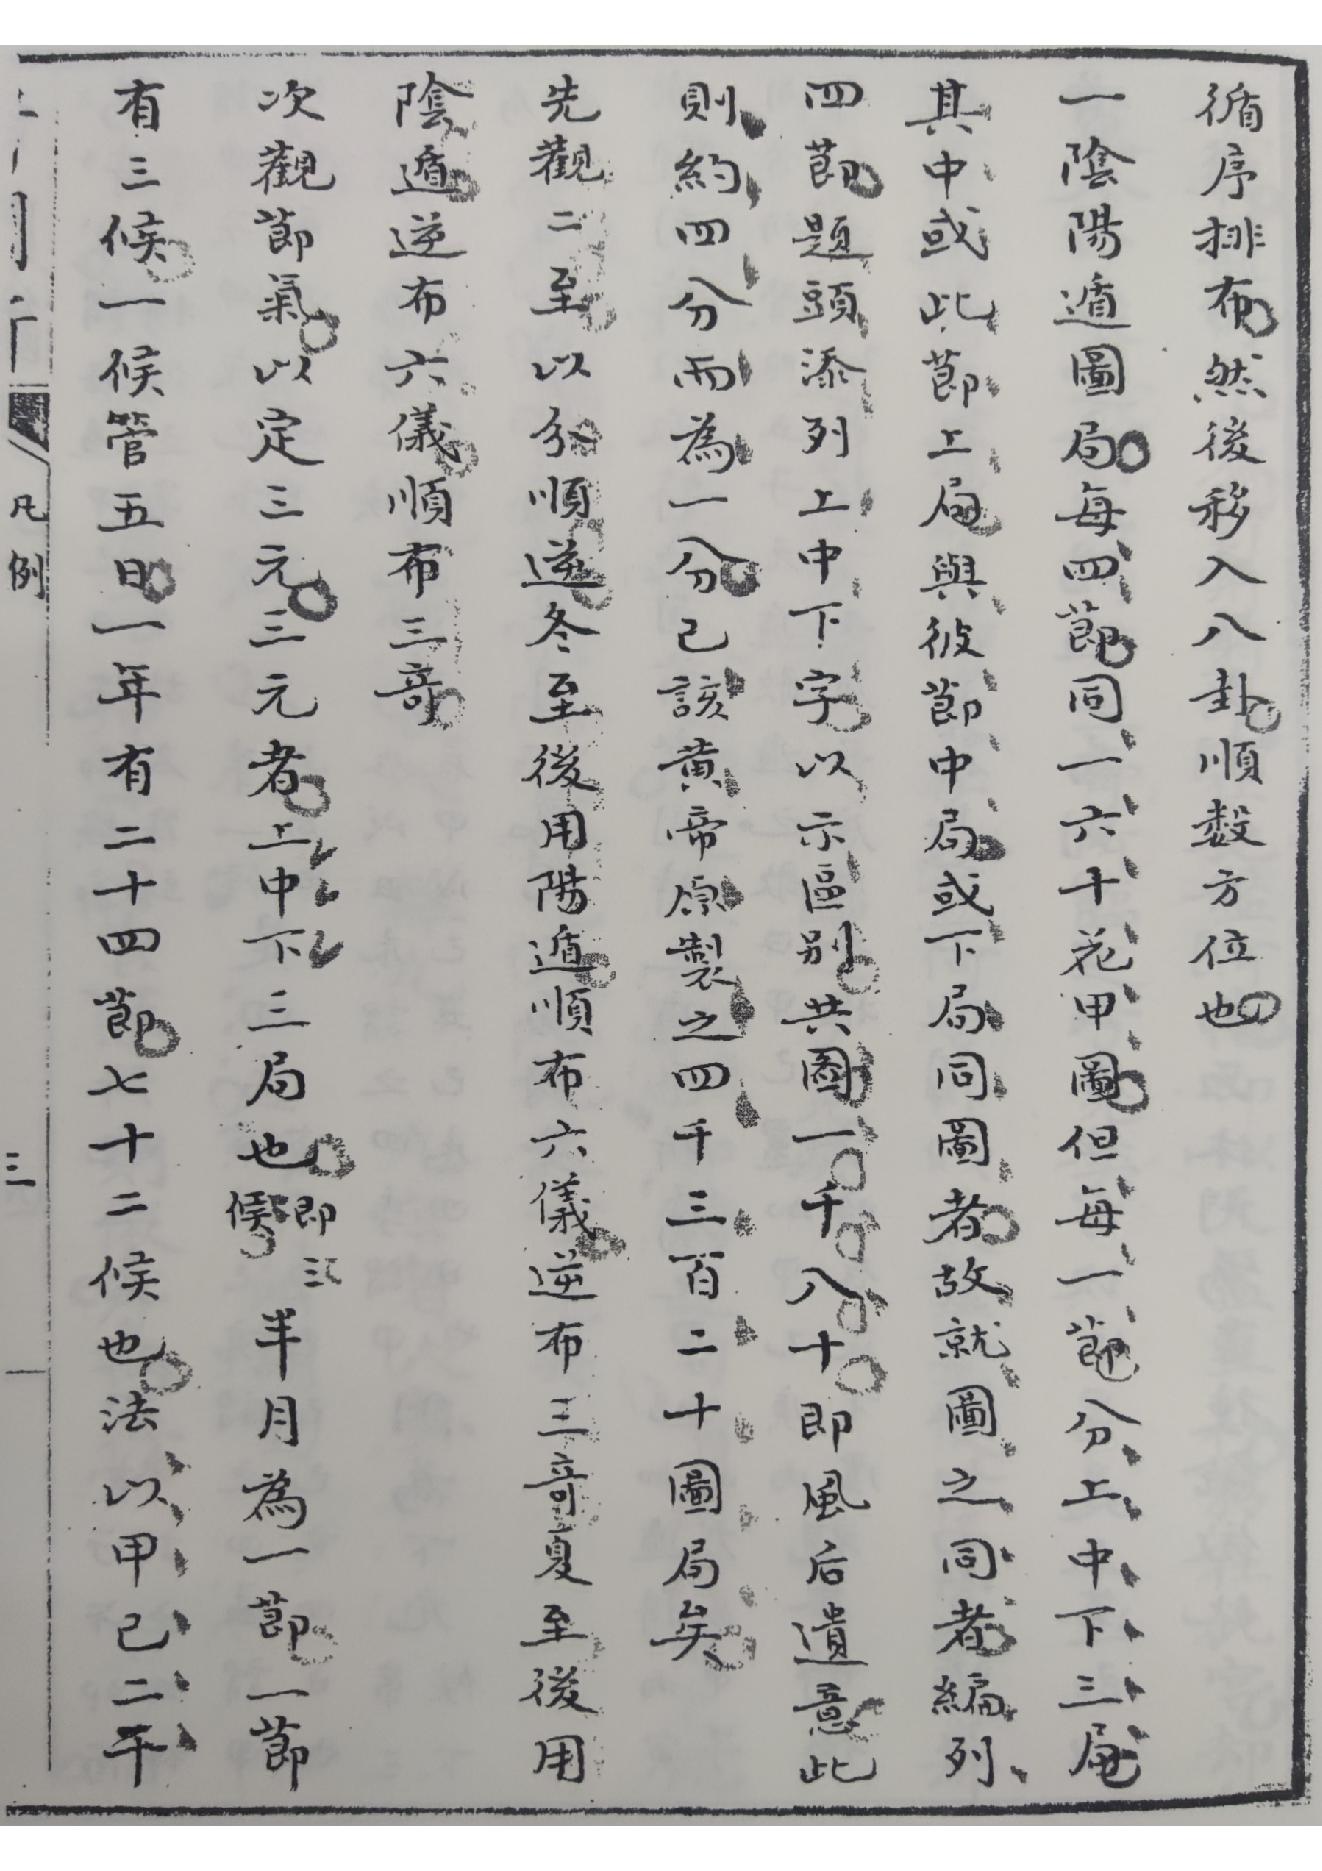 循序排布然後移入八卦順数方位也
一陰陽遁圖局每四節同一六十花甲圖但每一節分上中下三局
其中或此節上局與彼節中局或下局同圖者故就圖之同者編列
四節題頭添列上中下字以示區别共圖一千八十即風后遺意此
則約四分而為一分已該黄帝原製之四千三百二十圖局矣
先觀二至以分順逆冬至後用陽遁順布六儀逆布三奇夏至後用
陰遁逆布六儀順布三奇
次觀節氣以定三元三元者上中下三局也即三候半月為一節一節
有三候一候管五日一年有二十四節七十二候也法以甲己二干
凡例
三